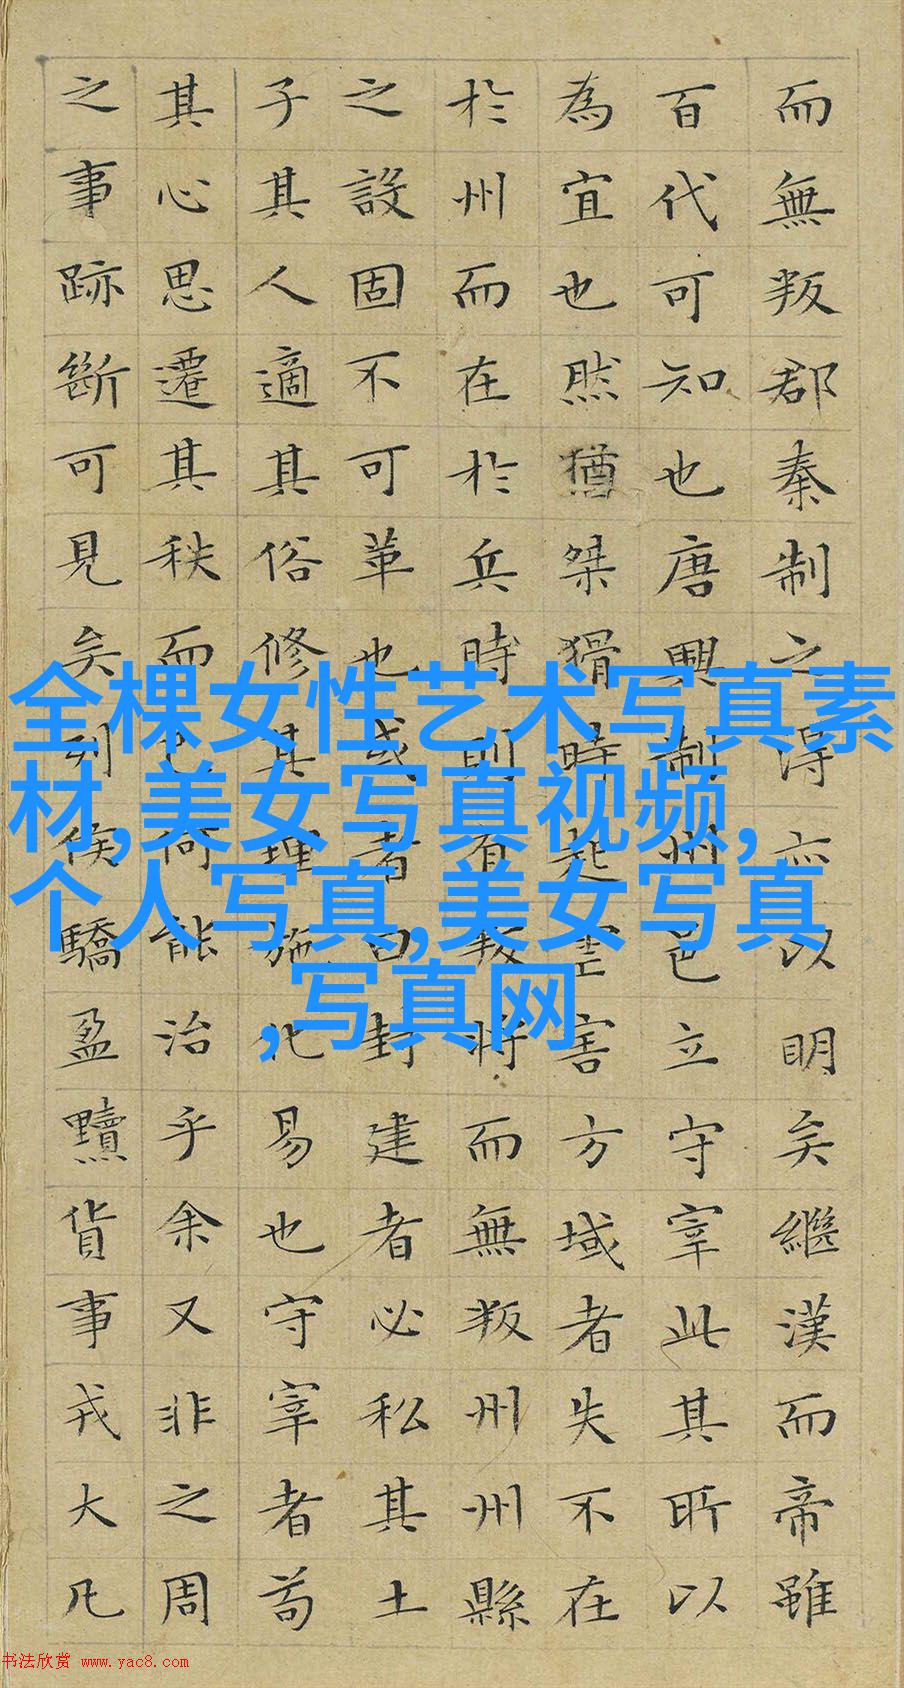 而無叛郡秦制之得亦以明矣繼漢而帝雖
百代可知也唐興制州邑立守宰此其所以
為宜也然猶桀猾時起虐害方域者失不在
於州而在於兵時則有叛將而無叛州州縣
之設固不可革也或者曰封建者必私其土
子其人適其俗修其理施化易也守宰者苟
其心思遷其秩而已何能治乎余又非之周
之事跡斷可見矣列侯驕盈黷貨事戎大凡
全棵女性艺术写真素
材,美女写真视频,
个人写真,美女写真
,写真网
书法欣赏 www.yac8.com